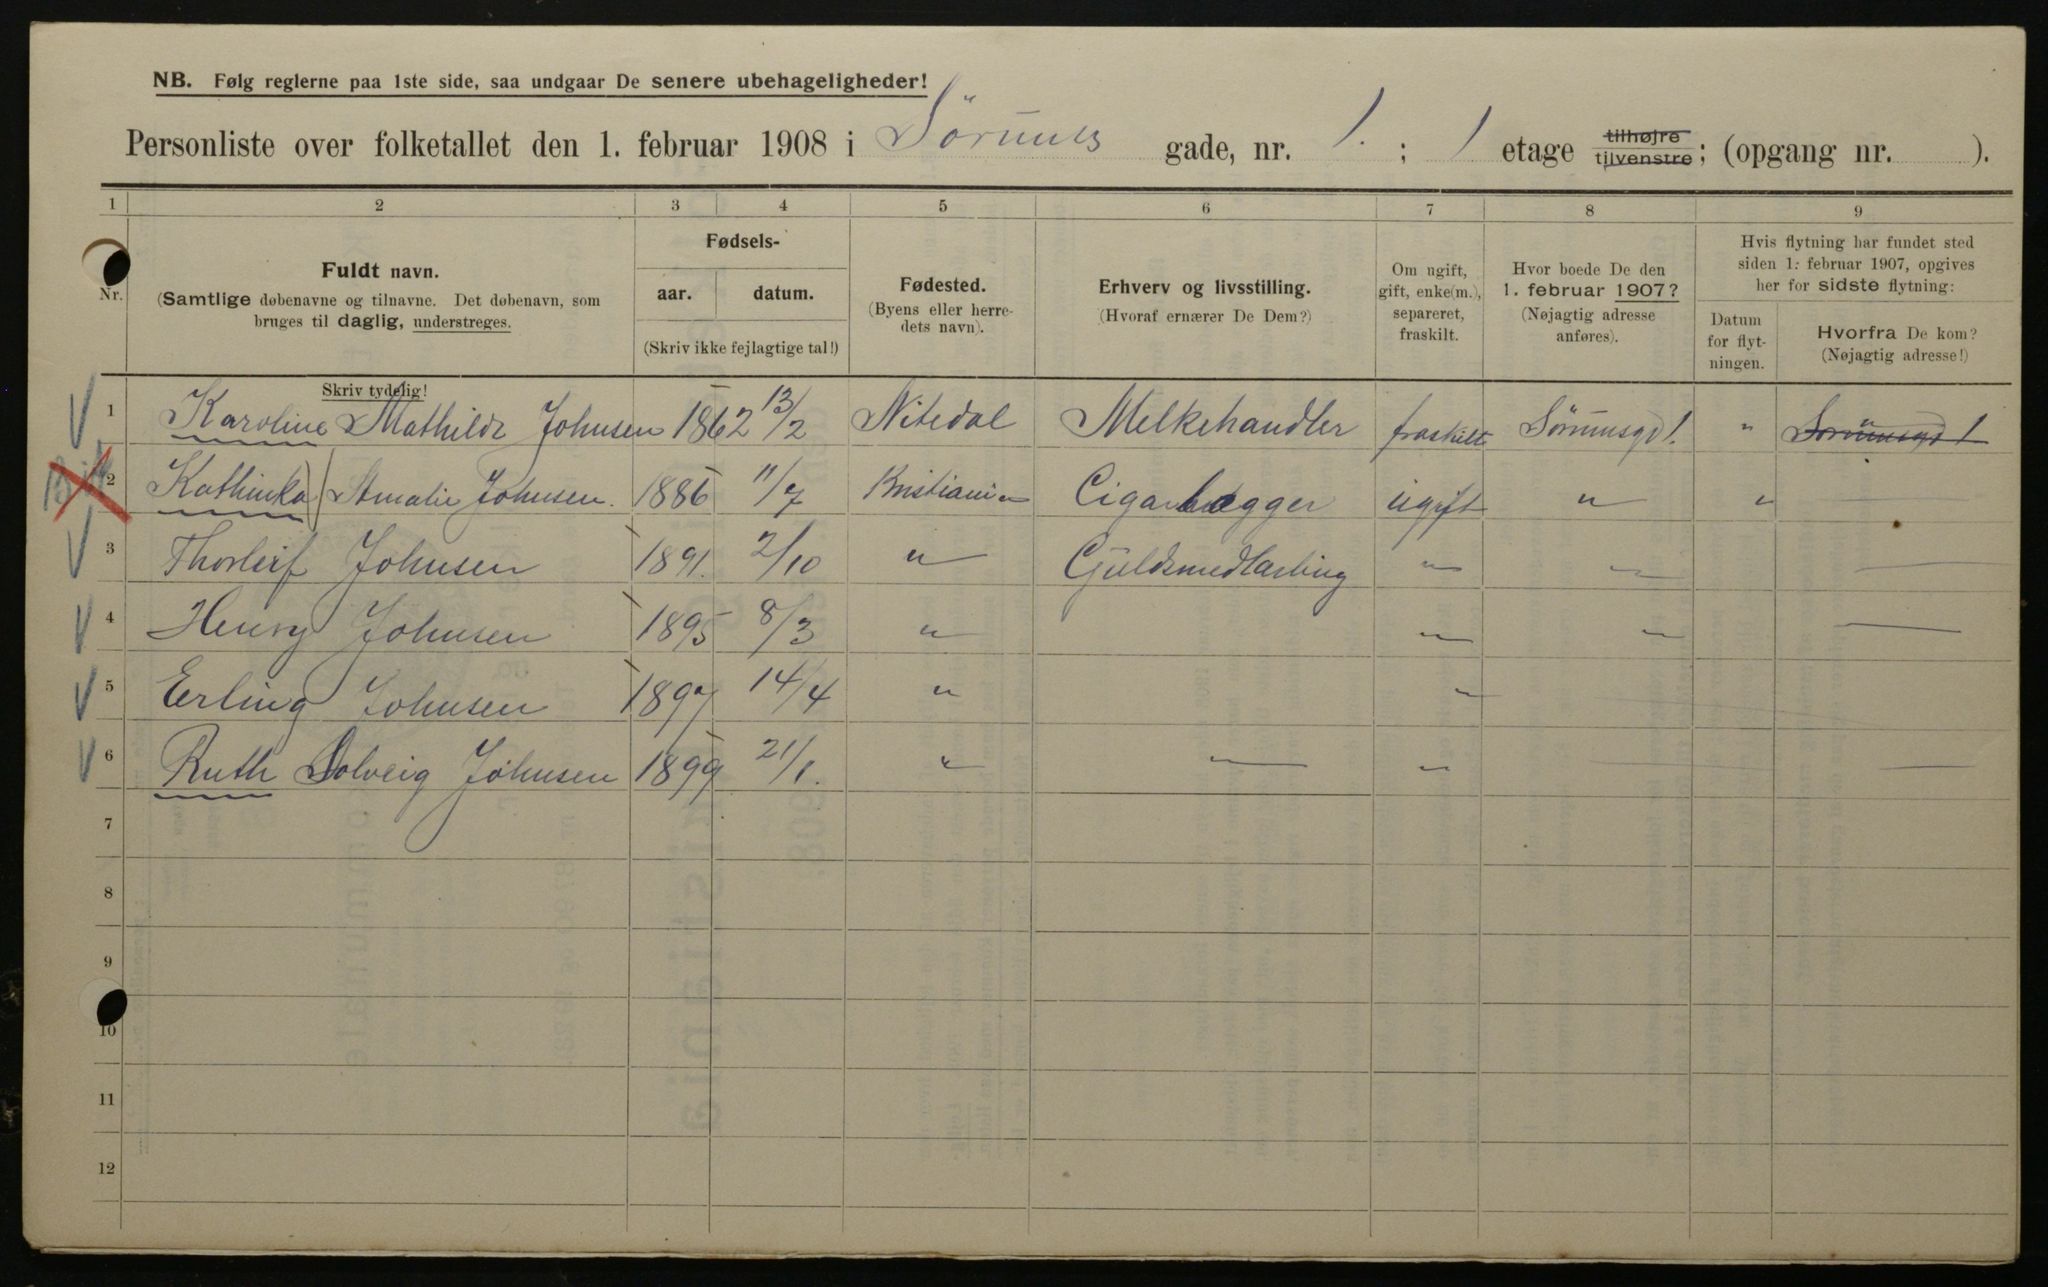 NB. Følg reglerne paa 1ste side, saa undgaar De senere ubehageligheder!
Personliste over folketallet den 1. februar 1908 i Sørums gade, nr. 1. ; 1 etage tilhøjre tilvenstre; (opgang nr. ).
1 2 3 4 5 6 7 8 9
Nr. Fuldt navn. (Samtlige døbenavne og tilnavne. Det døbenavn, som bruges til daglig, understreges.
Skriv tydelig!
Fødsels-
aar. datum.
(Skriv ikke fejlagtige tal!)
Fødested.
(Byens eller herre-
dets navn).
Erhverv og livsstilling.
(Hvoraf ernærer De Dem?)
Om ugift,
gift, enke(m.),
separeret,
fraskilt.
Hvor boede De den
1. februar 1907?
(Nøjagtig adresse
anføres).
Hvis flytning har fundet sted
siden 1. februar 1907, opgives
her for sidste flytning:
Datum
for flyt-
ningen.
Hvorfra De kom?
(Nøjagtig adresse!)
1 Karoline Mathilde Johnsen 1862 13/2 Nitedal Melkehandler fraskilt Sørumsgd 1. " Sørumsgd 1
2 Kathinka Amalie Johnsen. 1886 11/7 Kristiania Cigarlægger ugift " "
3 Thorleif Johnsen 1891. 2/10 " Guldsmedlærling " "
4 Henry Johnsen 1895 8/3 " " "
5 Erling Johnsen 1897 14/4 " "
6 Ruth Solveig Johnsen 1899 21/1. " "
7
8
9
10
11
12